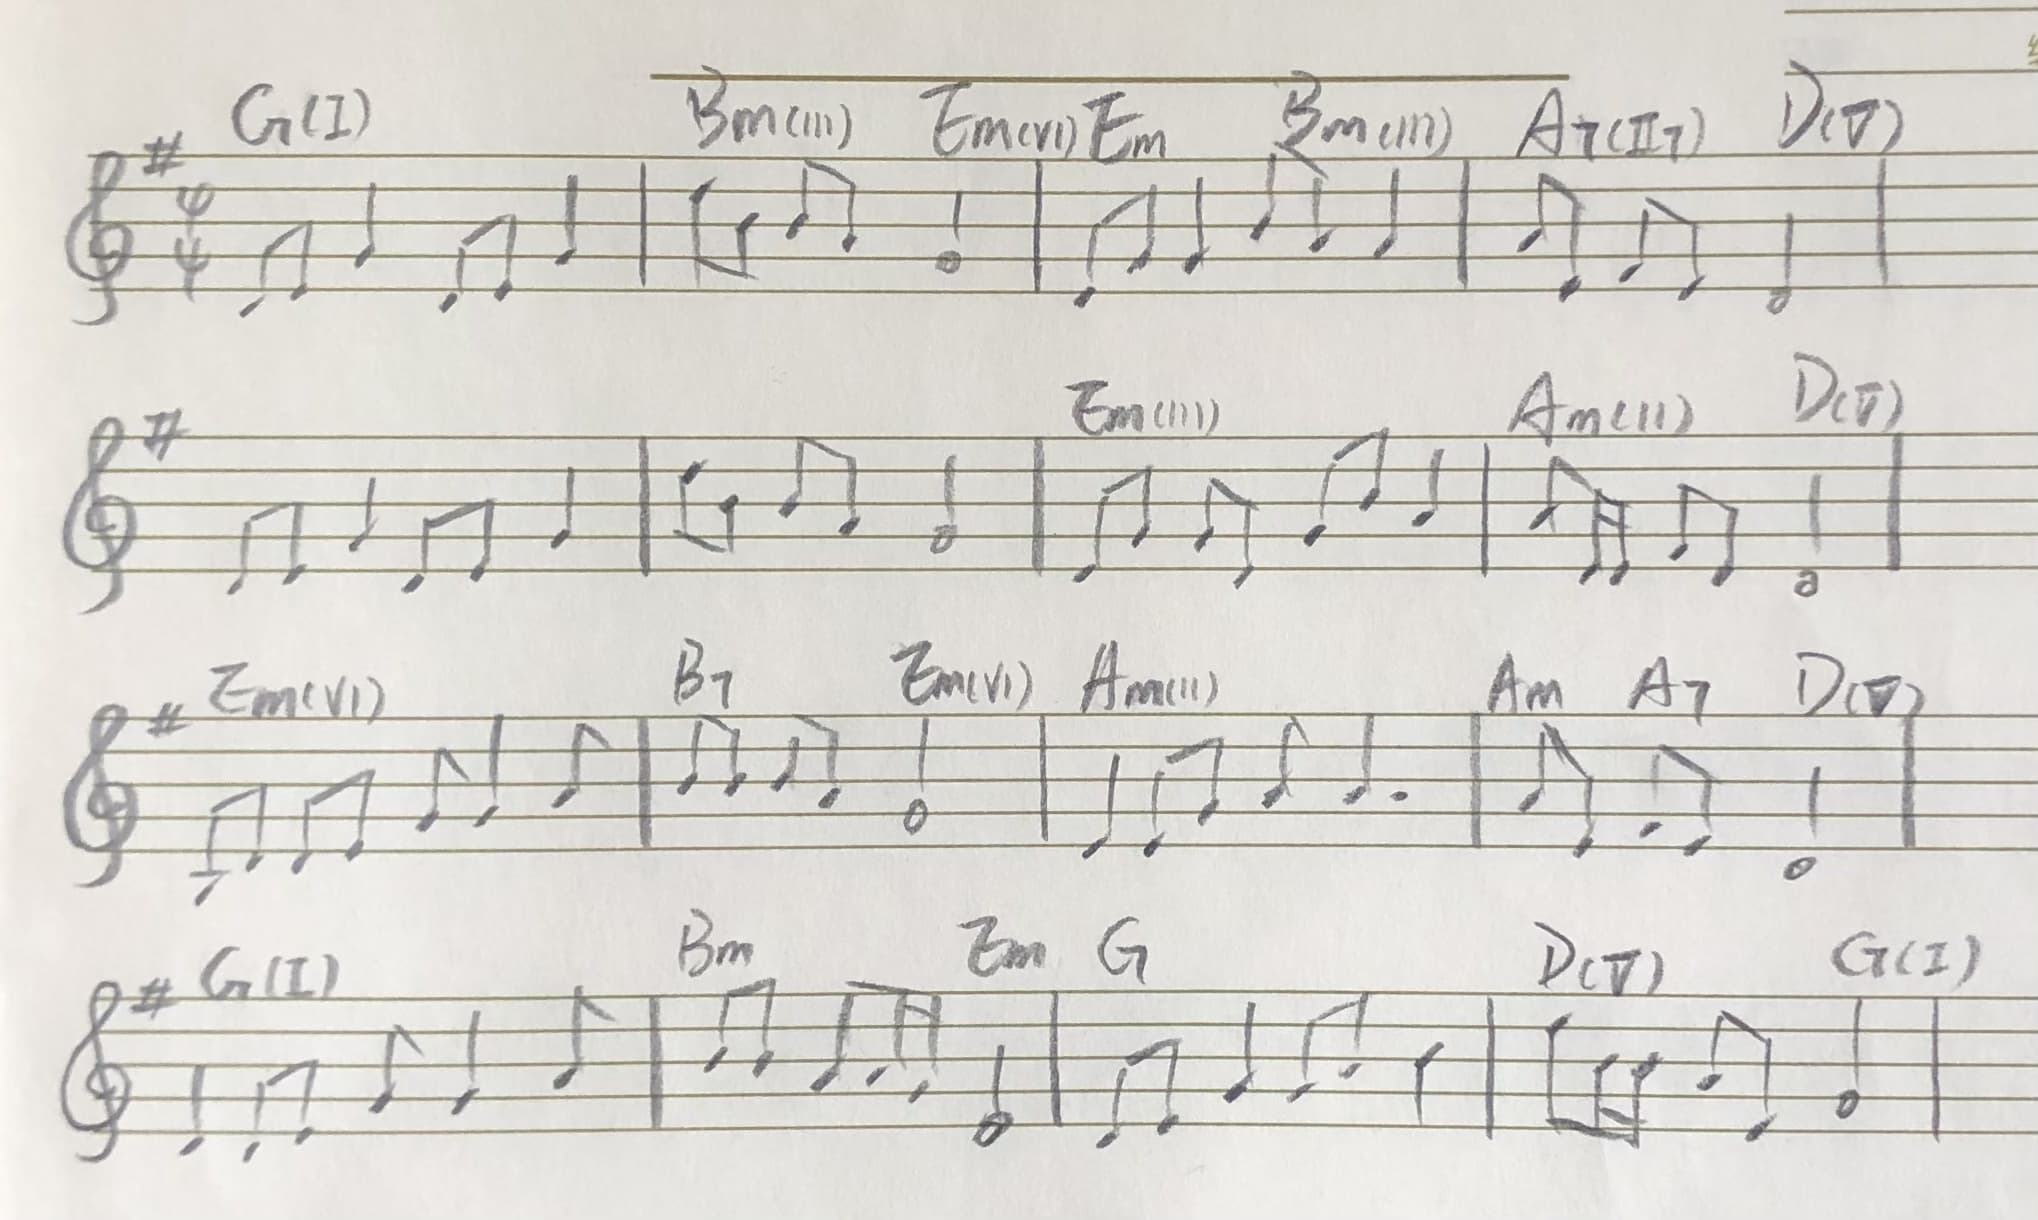 G(I) Bm(III) Em(VI) Em Bm(III) A7(II7) D(V)
4
4
Em(III) Am(II) D(V)
Em(VI) B7 Em(VI) Am(II) Am A7 D(V)
G(I) Bm Em G D(V) G(I)